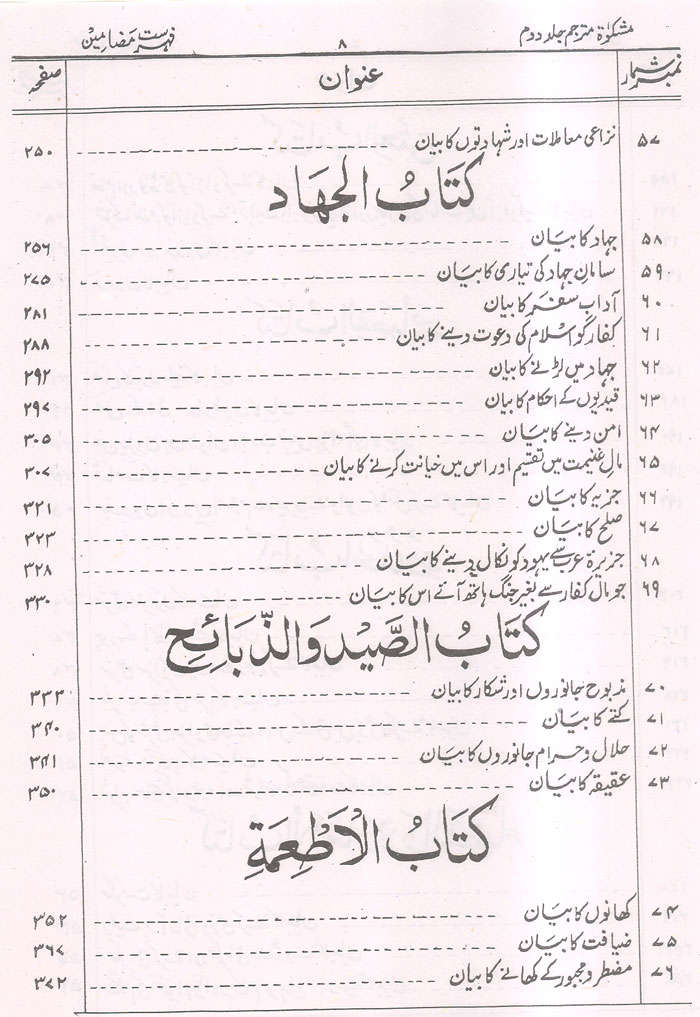 مشکوٰۃ مترجم جلد دوم ۸ فہرست مضامین
نمبر شمار عنوان صفحہ
۵۷ نزاعی معاملات اور شہادتوں کا بیان ۲۵۰
کتَابُ الجھَاد
۵۸ جہاد کا بیان ۲۵۶
۵۹ سامان جہاد کی تیاری کا بیان ۲۷۵
۶۰ آداب سفر کا بیان ۲۸۱
۶۱ کفار کو اسلام کی دعوت دینے کا بیان ۲۸۸
۶۲ جہاد میں لڑنے کا بیان ۲۹۲
۶۳ قیدیوں کے احکام کا بیان ۲۹۷
۶۴ امن دینے کا بیان ۳۰۵
۶۵ مال غنیمت میں تقسیم اور اس میں خیانت کرنے کا بیان ۳۰۷
۶۶ جزیہ کا بیان ۳۲۱
۶۷ صلح کا بیان ۳۲۳
۶۸ جزیرۃ عرب سے یہود کو نکال دینے کا بیان ۳۲۸
۶۹ جو مال کفار سے بغیر جنگ ہاتھ آئے اس کا بیان ۳۳۰
کتَابُ الصَّیْد وَالذَّبَائِح
۷۰ مذبوح جانوروں اور شکار کا بیان ۳۳۳
۷۱ کتے کا بیان ۳۴۰
۷۲ حلال و حرام جانوروں کا بیان ۳۴۱
۷۳ عقیقہ کا بیان ۳۵۰
کتَابُ الْاَطْعِمَةِ
۷۴ کھانوں کا بیان ۳۵۲
۷۵ ضیافت کا بیان ۳۶۷
۷۶ مضطر و مجبور کے کھانے کا بیان ۳۷۲